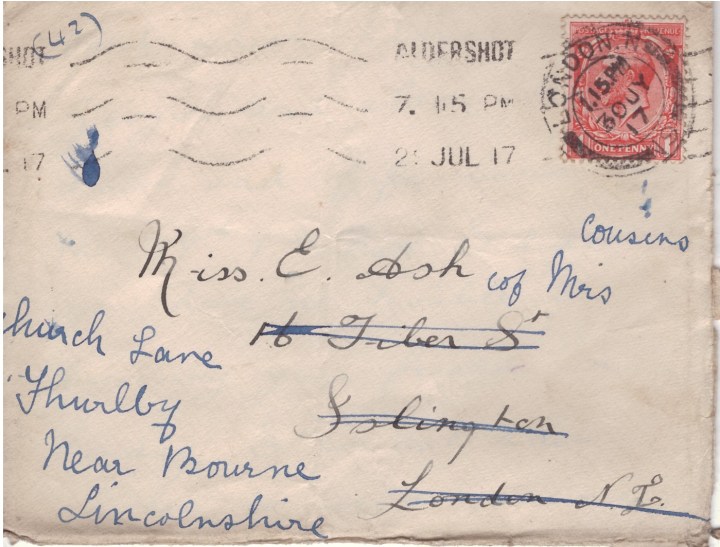 (42)
SHOT
PM
L 17
ALDERSHOT
7. 15 PM
JUL 17
POSTAGE REVENUE
LONDON. N
7.15.PM
30 JY
17
ONE PENNY
cousins
Miss. E. Ash c/o Mrs
16 Tiber St
Islington
London N.
Church Lane
Thurlby
Near Bourne
Lincolnshire